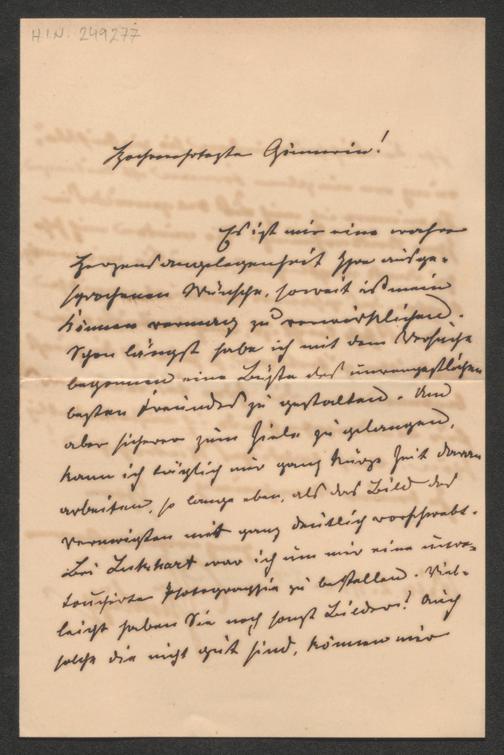 H.I.N. 249277
Hochverehrteste Gönnerin!
Es ist mir eine wahre
Herzensangelegenheit Ihre ausge-
sprochenen Wünsche, soweit es mein
Können vermag zu verwirklichen.
Schon längst habe ich mit dem Versuche
begonnen eine Büste des unvergeßlichen
besten Freundes zu gestalten. Um
aber sicherer zum Ziele zu gelangen,
kann ich täglich nur ganz kurze Zeit daran
arbeiten, so lange eben, als das Bild des
Verewigten mir ganz deutlich vorschwebt.
Bei Luckhart war ich um mir eine unre-
touchirte Photographie zu bestellen. Viel-
leicht haben Sie noch sonst Bilder? Auch
solche die nicht gut sind, können mir